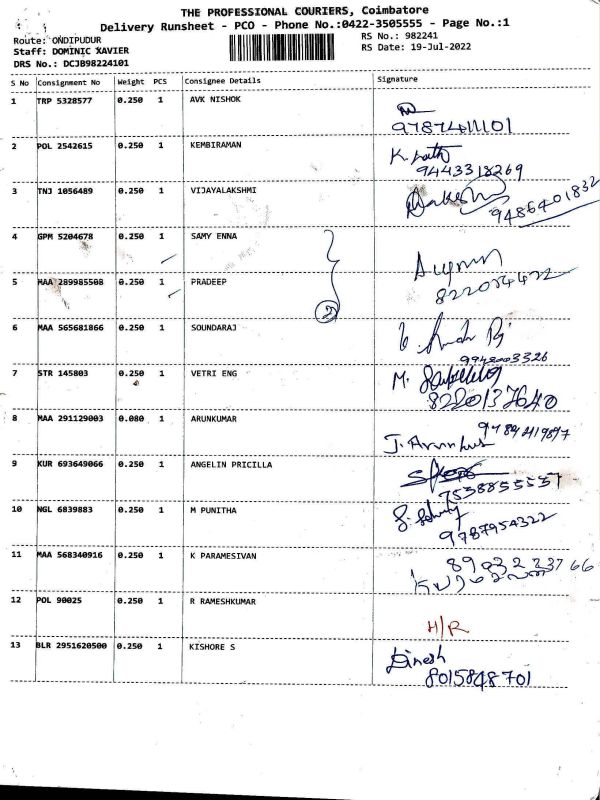 THE PROFESSIONAL COURIERS, Coimbatore
Delivery Runsheet - PCO - Phone No.:0422-3505555 - Page No.:1
Route: ONDIPUDUR RS No.: 982241
Staff: DOMINIC XAVIER RS Date: 19-Jul-2022
DRS No.: DCJB98224101
S No Consignment No Weight PCS Consignee Details Signature
1 TRP 5328577 0.250 1 AVK NISHOK
9787411101
2 POL 2542615 0.250 1 KEMBIRAMAN
9443318269
3 TNJ 1056489 0.250 1 VIJAYALAKSHMI
9486401832
4 GPM 5204678 0.250 1 SAMY ENNA
5 MAA 289985508 0.250 1 PRADEEP
2
6 MAA 565681866 0.250 1 SOUNDARAJ
7 STR 145803 0.250 1 VETRI ENG
M.
8220137640
8 MAA 291129003 0.080 1 ARUNKUMAR
9 KUR 693649066 0.250 1 ANGELIN PRICILLA
7538855557
10 NGL 6839883 0.250 1 M PUNITHA
9787954322
11 MAA 568340916 0.250 1 K PARAMESIVAN
12 POL 90025 0.250 1 R RAMESHKUMAR
H/R
13 BLR 2951620500 0.250 1 KISHORE S
Dinesh
8015848701